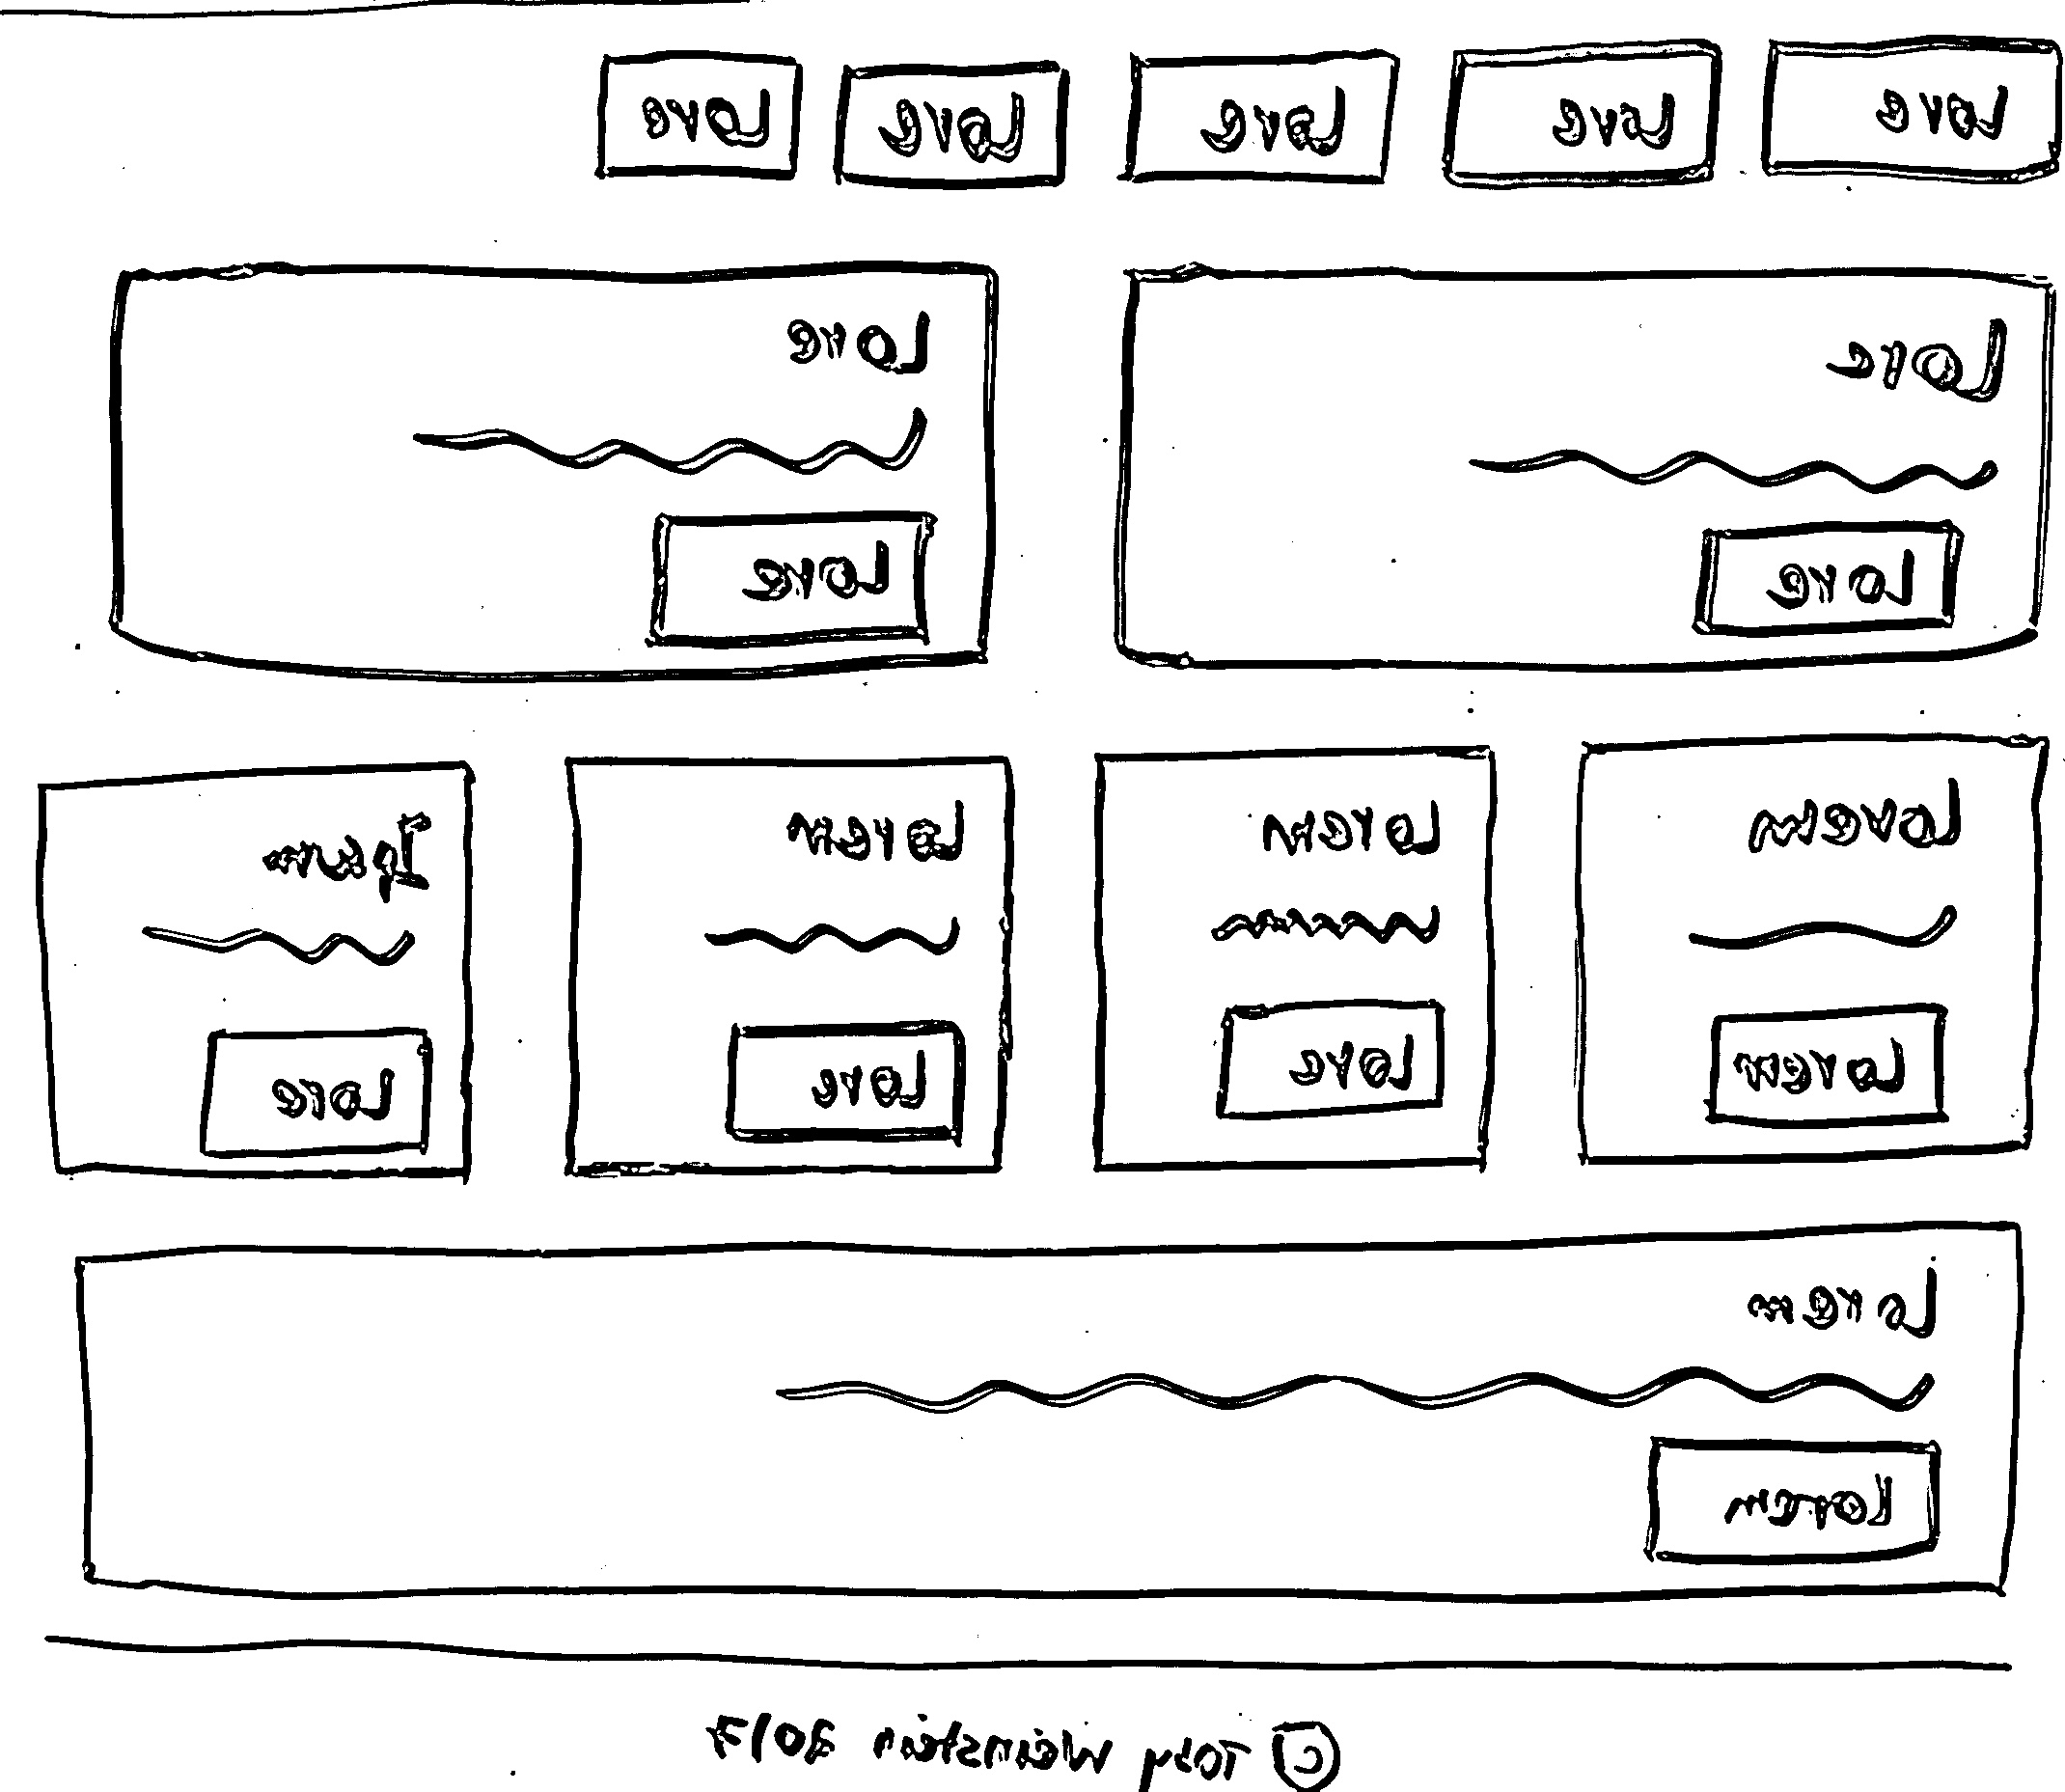 Lore Lore Lore Lore Lore
Lore Lore
Lore Lore
Lorem Lorem Lorem Ipsum
Lorem Lore Lore Lore
Lorem
Lorem
© Toby Weinstein 2017